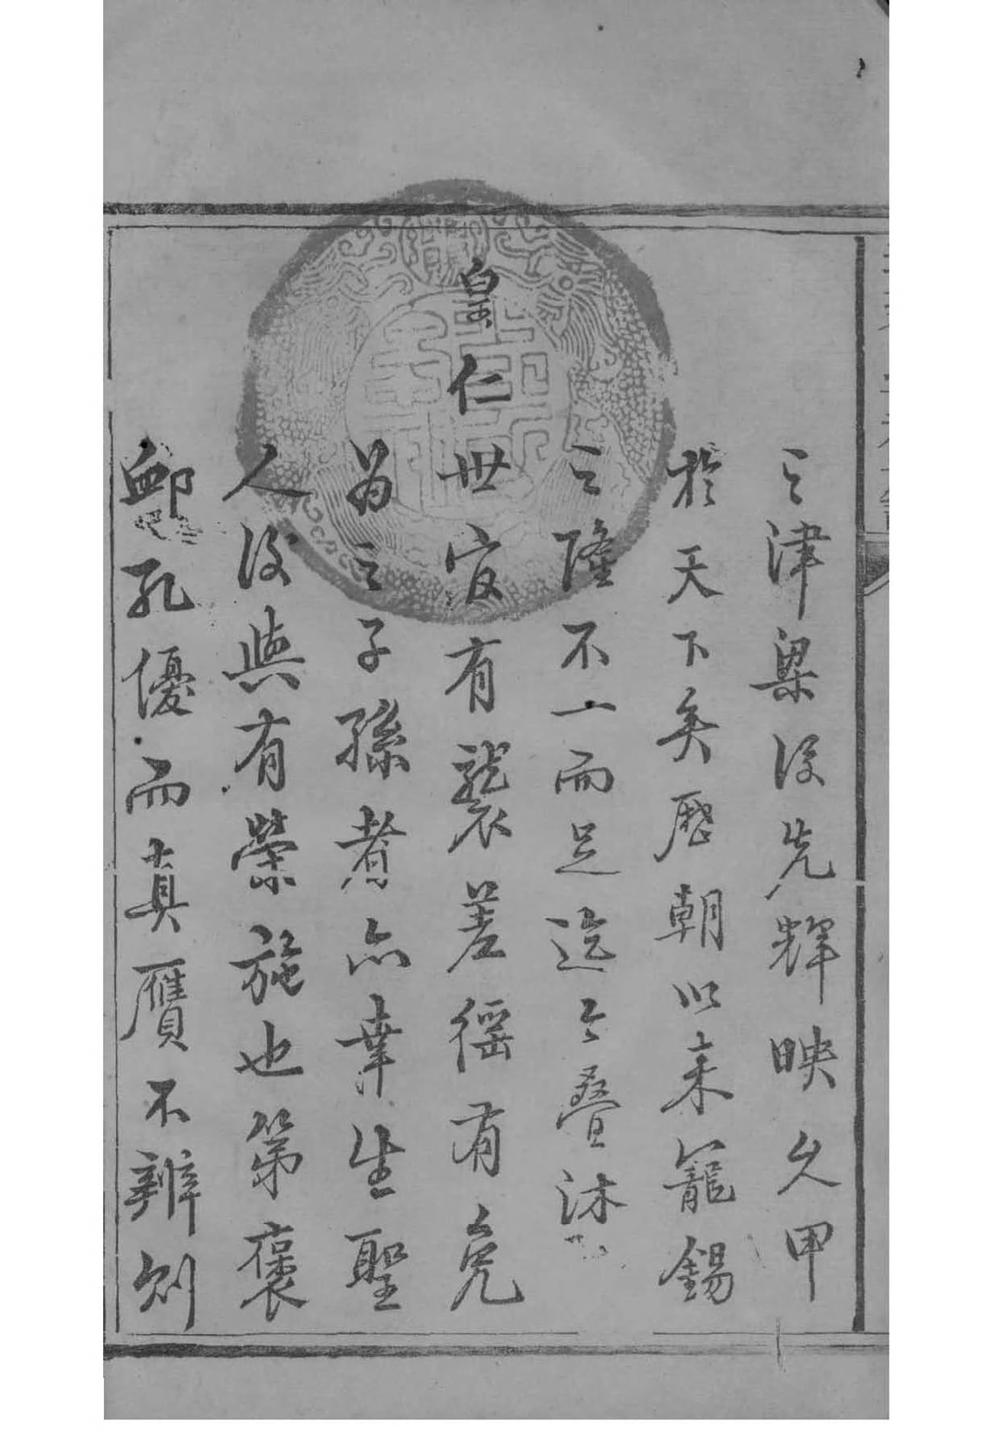 之津梁後先輝映久甲
於天下矣歷朝以来寵錫
之隆不一而足迄今疊沐
皇仁世官有襲差徭有免
為之子孫者亦幸生聖
人後與有榮施也第褒
卹孔優而真贋不辨則